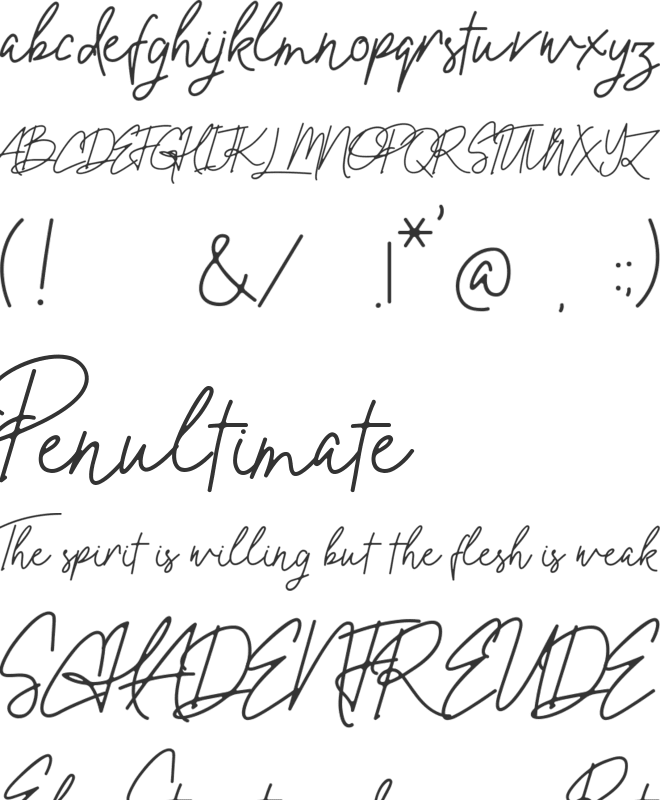 abcdefghijklmnopqrstuvwxyz
ABCDEFGHIJKLMNOPQRSTUVWXYZ
(! &/ .|*’@ , :;)
Penultimate
The spirit is willing but the flesh is weak
SCHADENFREUDE